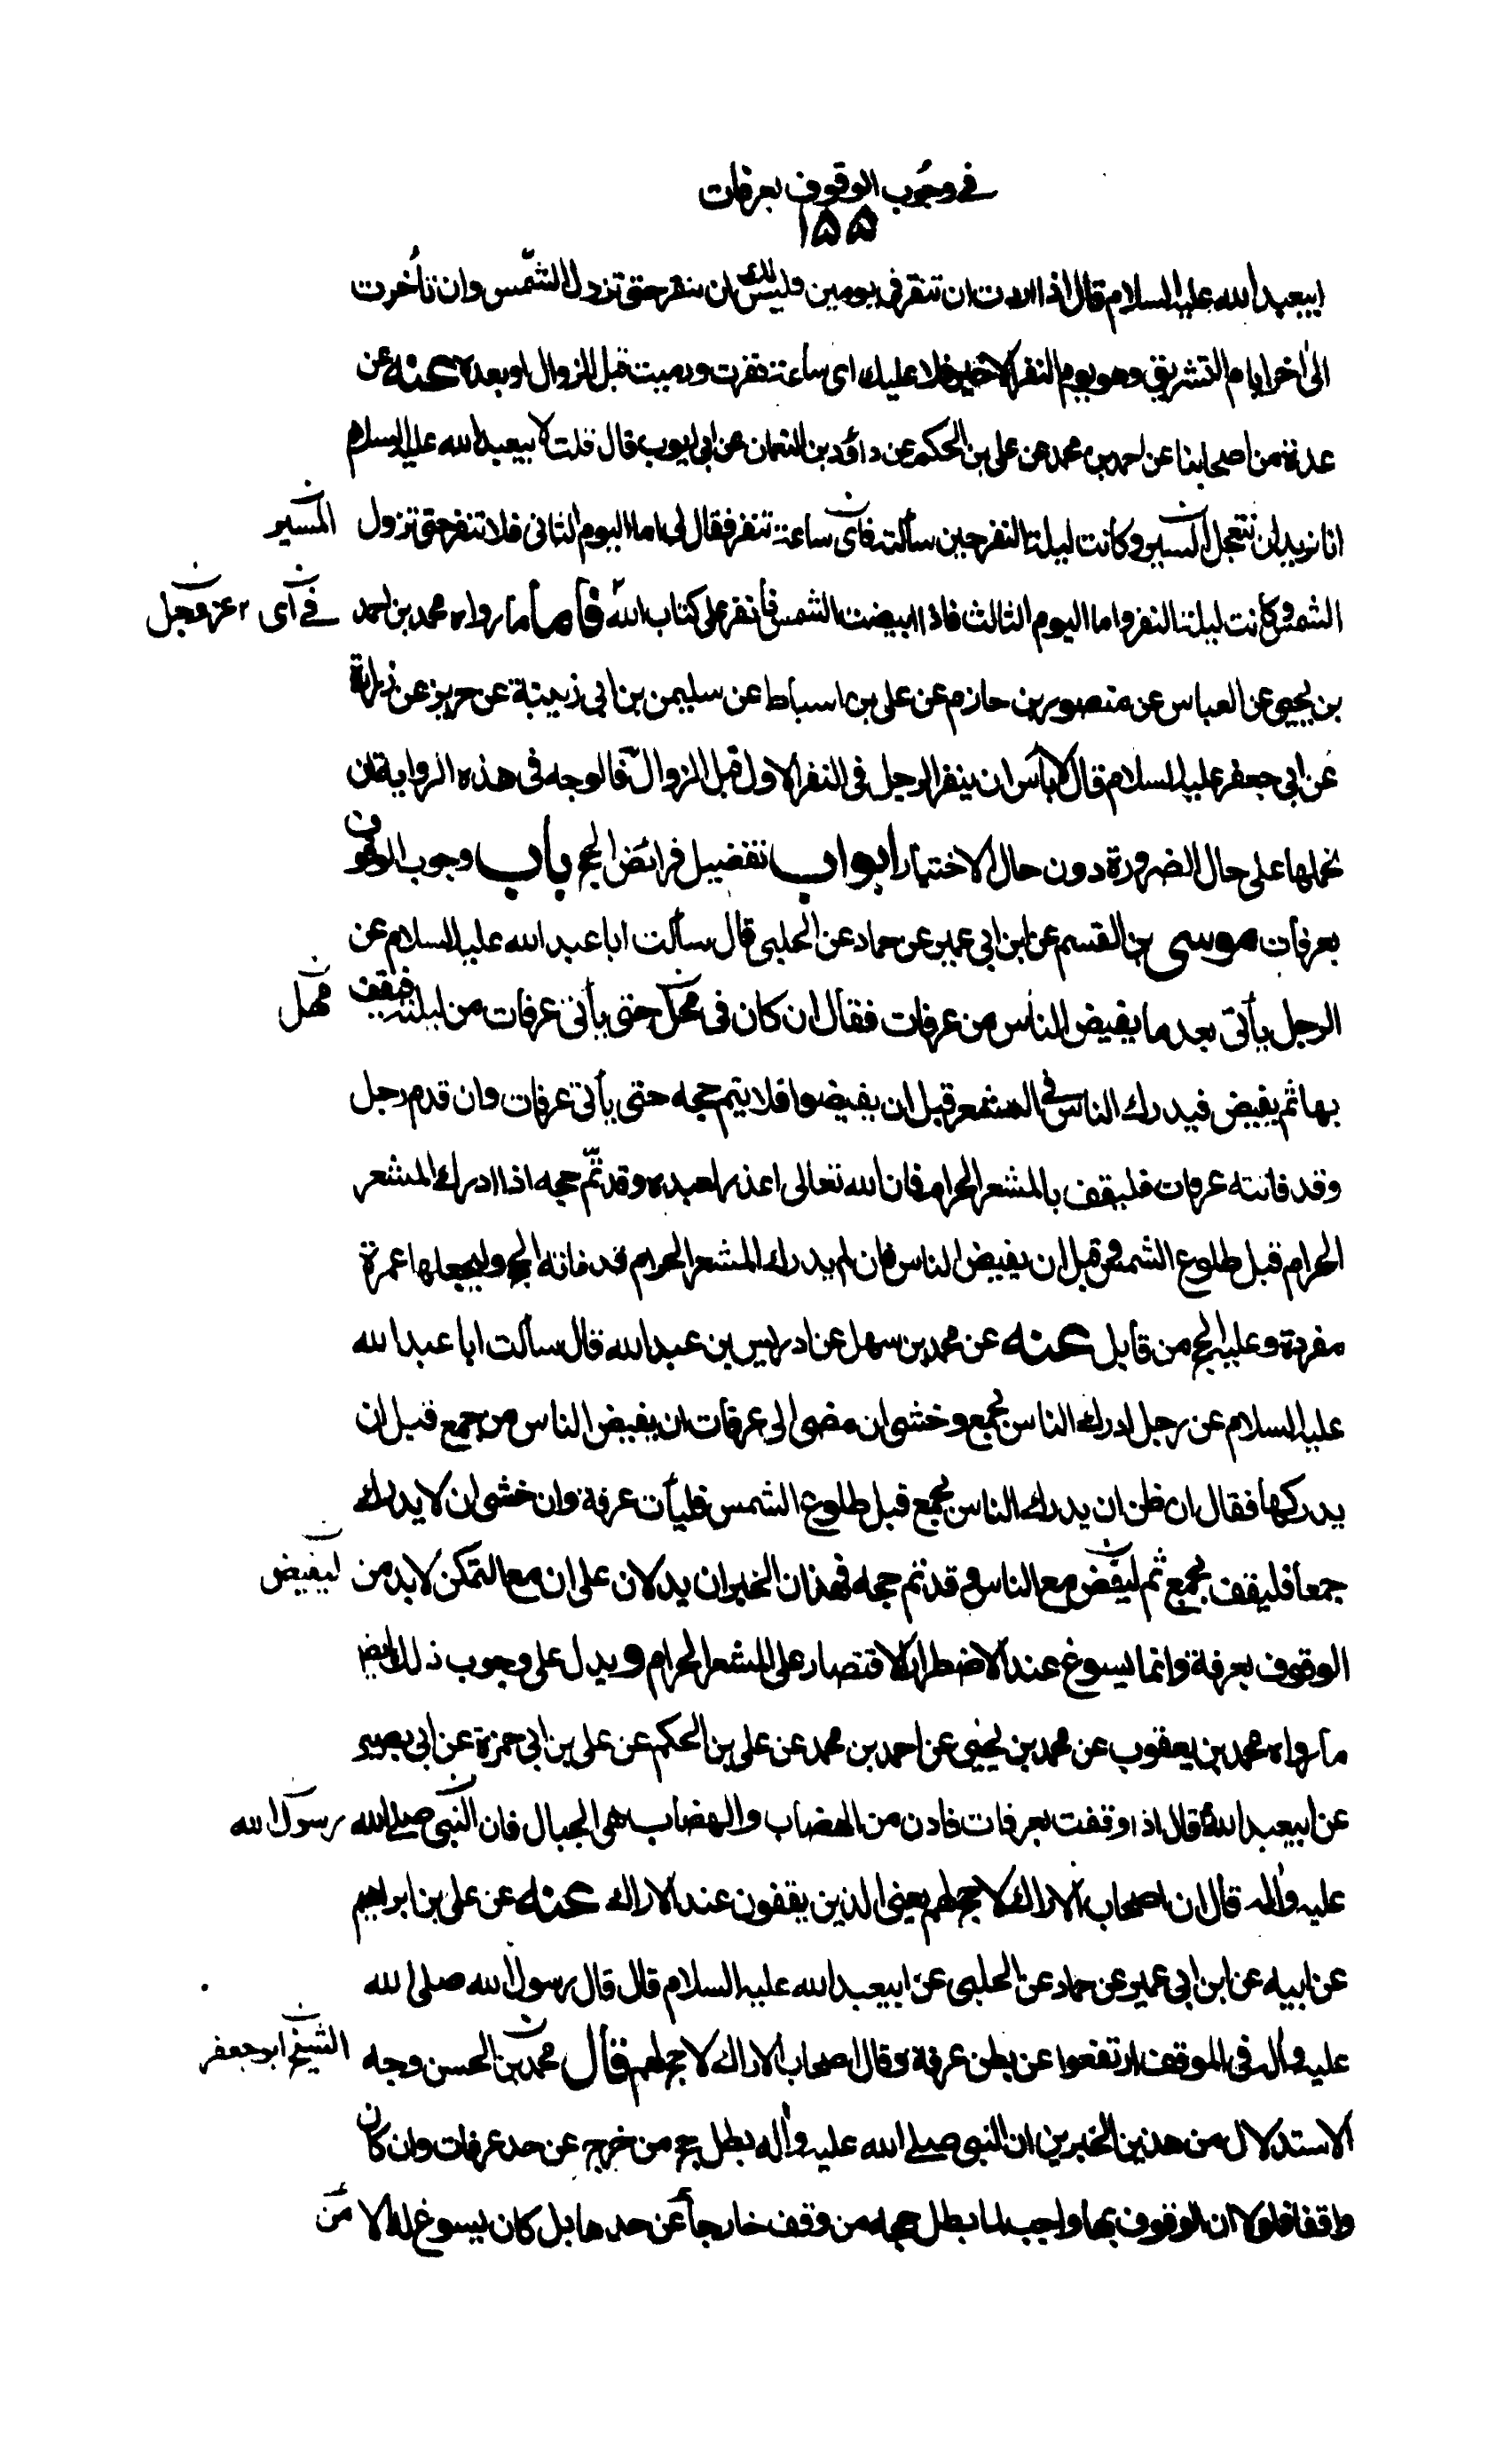 في وجوب الوقوف بعرفات
١٥٥
ابيعبد الله عليه السلام قال اذا اردت ان تنفر في يومين فليس لك ان تنفر حتى تزول الشمس وان تأخرت
الى اخر ايام التشريق وهو يوم النفر الاخير فلا عليك اى ساعة نفرت ورميت قبل الزوال او بعده عنه عن
عدة من اصحابنا عن احمد بن محمد عن على بن الحكم عن داود بن النعمان عن ابى ايوب قال قلت لابيعبد الله عليه السلام
انا نريد ان نتعجل السير وكانت ليلة النفر حين سألته فاى ساعة ننفر فقال لى اما اليوم الثانى فلا تنفر حتى تزول المسير
الشمس وكانت ليلة النفر واما اليوم الثالث فاذا ابيضت الشمس فانفر على كتاب الله فاما ما رواه محمد بن احمد في اى عز وجل
بن يحيى عن العباس عن منصور بن حازم عن على بن اسباط عن سليمن بن ابى زينبة عن حريز عن زرارة
عن ابى جعفر عليه السلام قال لا بأس ان ينفر الرجل فى النفر الاول قبل الزوال فالوجه فى هذه الرواية ان
نحملها على حال الضرورة دون حال الاختيار ابواب تفصيل فرائض الحج باب وجوب الوقوف
بعرفات موسى بن القسم عن ابن ابى عمير عن حماد عن الحلبى قال سألت ابا عبد الله عليه السلام عن
الرجل يأتى بعد ما يفيض الناس من عرفات فقال ان كان فى محل حتى يأتى عرفات من ليلته فيقف مهل
بها ثم يفيض فيدرك الناس فى المشعر قبل ان يفيضوا فلا يتم حجه حتى يأتى عرفات وان قدم رجل
وقد فاتته عرفات فليقف بالمشعر الحرام فان الله تعالى اعذر لعبده وقد تم حجه اذا ادرك المشعر
الحرام قبل طلوع الشمس وقبل ان يفيض الناس فان لم يدرك المشعر الحرام فقد فاته الحج وليجعلها عمرة
مفردة وعليه الحج من قابل عنه عن محمد بن سهل عن ادريس بن عبد الله قال سألت ابا عبد الله
عليه السلام عن رجل ادرك الناس بجمع وخشى ان مضى الى عرفات ان يفيض الناس من جمع قبل ان
يدركها فقال ان ظن ان يدرك الناس بجمع قبل طلوع الشمس فليأت عرفة وان خشى ان لا يدرك
جمعا فليقف بجمع ثم ليفض مع الناس وقد تم حجه فهذان الخبران يدلان على ان مع التمكن لا بد من ليفيض
الوقوف بعرفة وانما يسوغ عند الاضطرار الاقتصار على المشعر الحرام ويدل على وجوب ذلك ايضا
ما رواه محمد بن يعقوب عن محمد بن يحيى عن احمد بن محمد عن على بن الحكم عن على بن ابى حمزة عن ابى بصير
عن ابيعبد الله قال اذا وقفت بعرفات فادن من الهضاب والهضاب هى الجبال فان النبى صلى الله رسول الله
عليه واله قال ان اصحاب الاراك لا حج لهم يعنى الذين يقفون عند الاراك عنه عن على بن ابراهيم
عن ابيه عن ابن ابى عمير عن حماد عن الحلبى عن ابيعبد الله عليه السلام قال قال رسول الله صلى الله
عليه واله فى الموقف ارتفعوا عن بطن عرفة وقال اصحاب الاراك لا حج لهم قال محمد بن الحسن وجه الشيخ ابو جعفر
الاستدلال من هذين الخبرين ان النبى صلى الله عليه واله بطل حج من خرج عن حد عرفات وان كان
واقفا فلولا ان الوقوف بها واجب لما بطل حجه من وقف خارجا عن حدها بل كان يسوغ له الا من